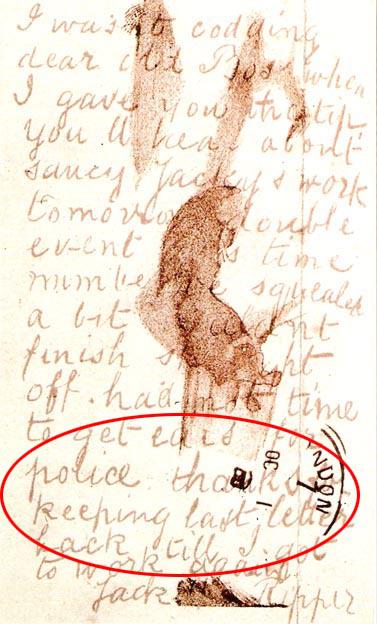 I wasnt codding
dear old Boss when
I gave you the tip
youll hear about
saucy Jackys work
tomorrow double
event time
number squealed
a bit
finish
off. had not time
to get ears for
police thanks
keeping last letter
back till I got
to work again.
Jack Ripper
30